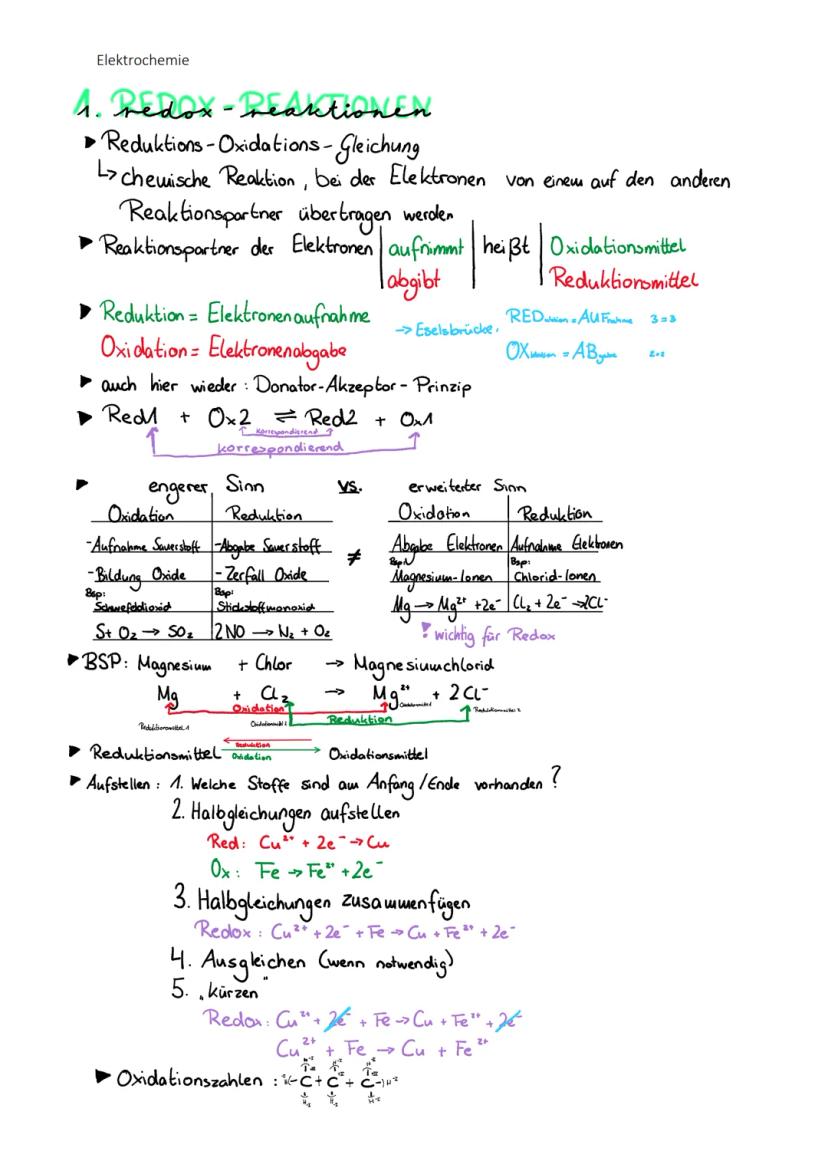 Elektrochemie
1. REDOX-REAKTIONEN
1. redox-reaktionen
▶ Reduktions-Oxidations-Gleichung
↳ chemische Reaktion, bei der Elektronen von einem auf den anderen
Reaktionspartner übertragen werden
▶ Reaktionspartner der Elektronen | aufnimmt | heißt | Oxidationsmittel
abgibt | Reduktionsmittel
▶ Reduktion = Elektronenaufnahme
Oxidation = Elektronenabgabe
→ Eselsbrücke:
REDuktion = AUFnahme 3=3
OXidation = ABgabe 2=2
▶ auch hier wieder: Donator-Akzeptor-Prinzip
▶ Red1 + Ox2 ⇌ Red2 + Ox1
korrespondierend
korrespondierend
▶ engerer Sinn vs. erweiterter Sinn
Oxidation | Reduktion
-Aufnahme Sauerstoff | -Abgabe Sauerstoff
-Bildung Oxide | -Zerfall Oxide
Bsp: | Bsp:
Schwefeldioxid | Stickstoffmonoxid
S+ O₂ → SO₂ | 2NO → N₂ + O₂
≠
Oxidation | Reduktion
Abgabe Elektronen | Aufnahme Elektronen
Bsp: | Bsp:
Magnesium-Ionen | Chlorid-Ionen
Mg → Mg²⁺ +2e⁻ | Cl₂ + 2e⁻ → 2Cl⁻
! wichtig für Redox
▶ BSP: Magnesium + Chlor → Magnesiumchlorid
Mg + Cl₂ → Mg²⁺ + 2Cl⁻
Oxidation
Reduktion
Reduktionsmittel 1 Oxidationsmittel 2 Oxidationsmittel 1 Reduktionsmittel 2
Reduktion
▶ Reduktionsmittel Oxidationsmittel
Oxidation
▶ Aufstellen: 1. Welche Stoffe sind am Anfang/Ende vorhanden?
2. Halbgleichungen aufstellen
Red: Cu²⁺ + 2e⁻ → Cu
Ox: Fe → Fe²⁺ + 2e⁻
3. Halbgleichungen zusammenfügen
Redox: Cu²⁺ + 2e⁻ + Fe → Cu + Fe²⁺ + 2e⁻
4. Ausgleichen (wenn notwendig)
5. „kürzen"
Redox: Cu²⁺ + 2e⁻ + Fe → Cu + Fe²⁺ + 2e⁻
Cu²⁺ + Fe → Cu + Fe²⁺
▶ Oxidationszahlen : C + C + C